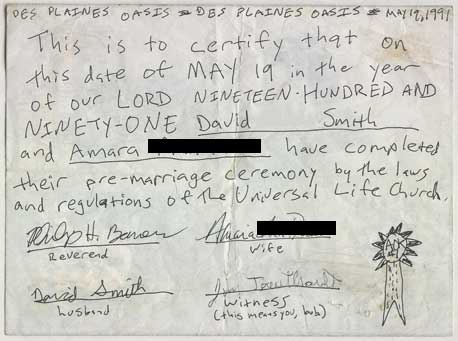 DES PLAINES OASIS * DES PLAINES OASIS * MAY 19, 1991
This is to certify that on
this date of MAY 19 in the year
of our LORD NINETEEN-HUNDRED AND
NINETY-ONE David Smith
and Amara have completed
their pre-marriage ceremony by the laws
and regulations of the Universal Life Church.
Philip H. Amara
Reverend wife
David Smith
husband witness
(this means you, bub)